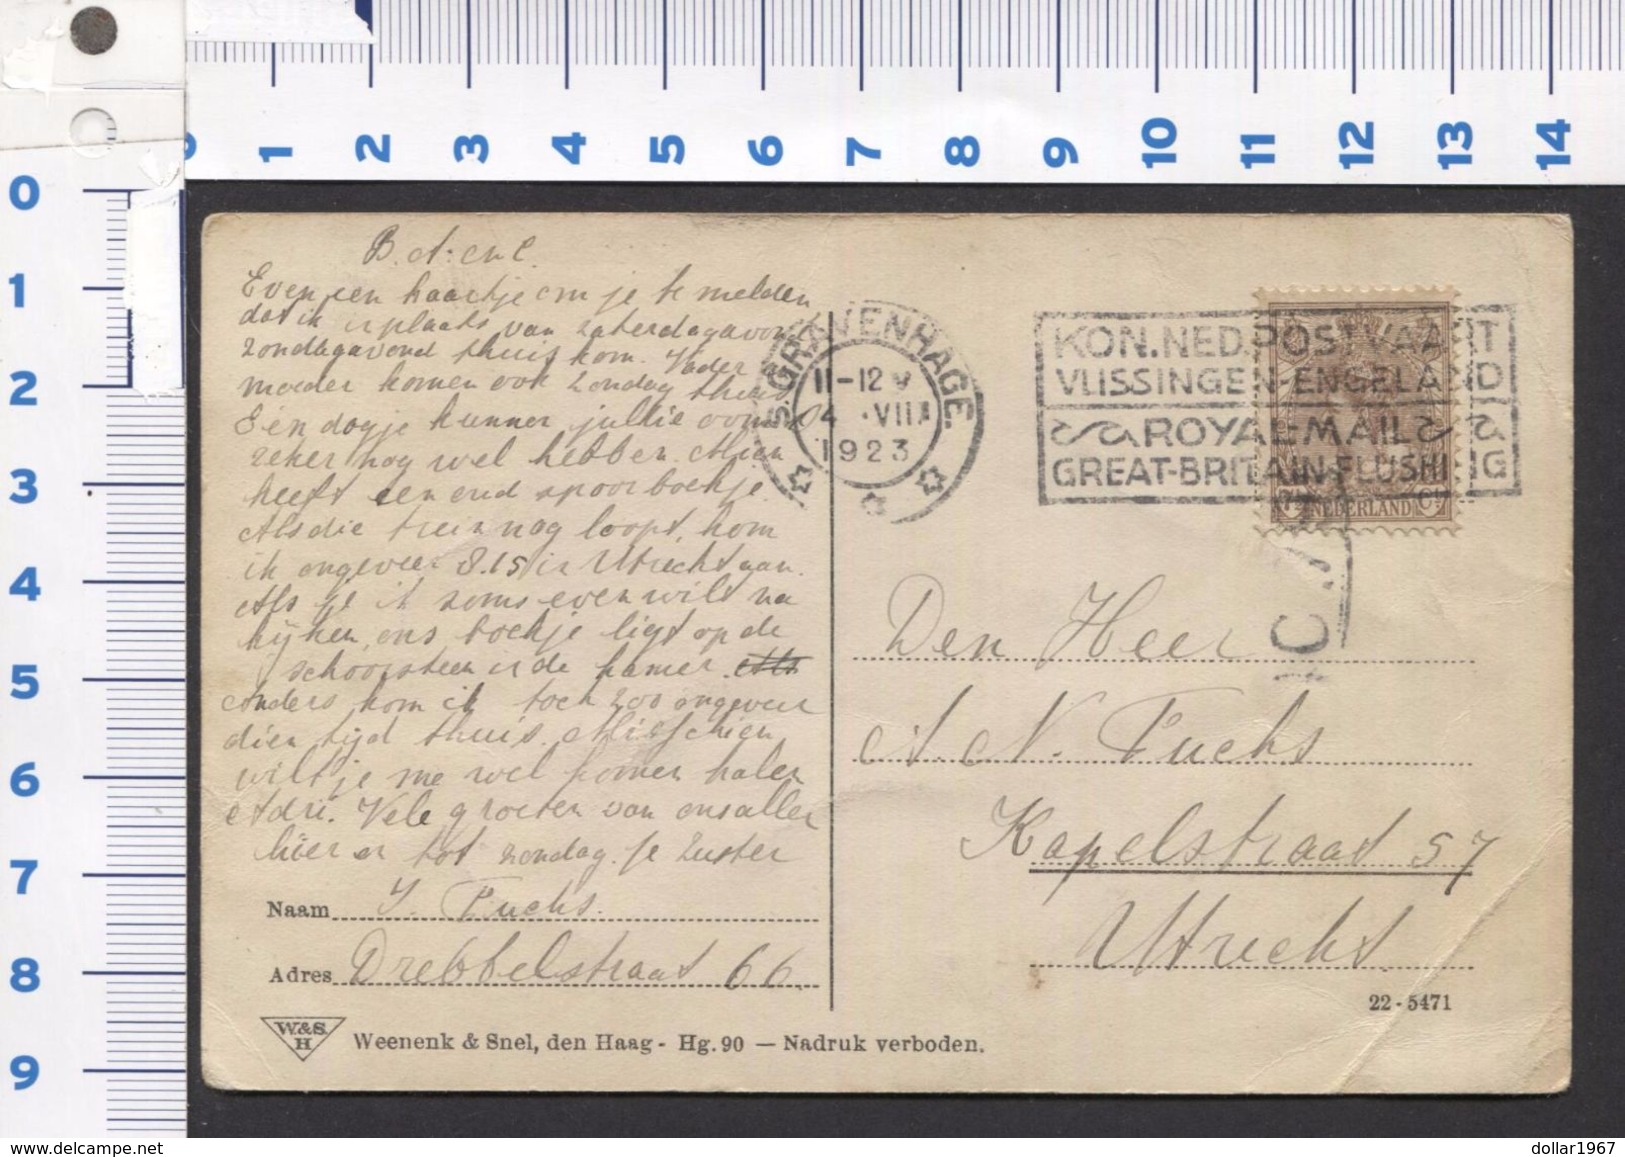 0
1
2
3
4
5
6
7
8
9
10
11
12
13
14
0
1
2
3
4
5
6
7
8
9
B. A. en C.
Even een kaartje om je te melden
dat ik in plaats van zaterdagavond
zondagavond thuis kom. Vader
moeder komen ook zondag thuis.
Eén dagje kunnen jullie ons
zeker nog wel hebben. Mien
heeft een oud spoorboekje.
Als die trein nog loopt, kom
ik ongeveer 8.15 in Utrecht aan.
Als je it soms even wilt na
kijken, ons boekje ligt op de
schoorsteen in de kamer. Als
Anders kom ik toch zoo ongeveer
dien tijd thuis. Misschien
wilt je me wel komen halen
Adri. Vele groeten van ons allen
hier en tot zondag. Je zuster
Naam J. Fuchs.
Adres Drebbelstraat 66.
W.&S.
H
Weenenk & Snel, den Haag - Hg. 90 — Nadruk verboden.
'S GRAVENHAGE.
11-12 V
4 .VIII
1923
KON. NED. POSTVAART
VLISSINGEN-ENGELAND
ROYAL MAIL
GREAT-BRITAIN-FLUSHING
7½ NEDERLAND Ct
Den Heer
A. N. Fuchs
Kapelstraat 57
Utrecht.
22 - 5471
dollar1967